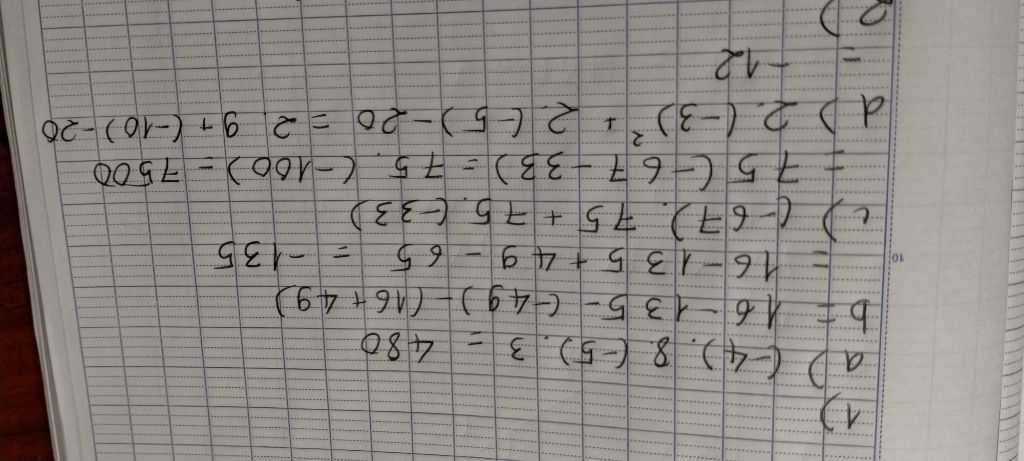 1)
a) (-4). 8. (-5). 3 = 480
b = 16 - 135 - (-49) - (16 + 49)
= 16 - 135 + 49 - 65 = -135
c) (-67). 75 + 75. (-33)
= 75 (-67 - 33) = 75. (-100) = 7500
d) 2. (-3)² + 2. (-5) - 20 = 2. 9 + (-10) - 20
= -12
2)
10